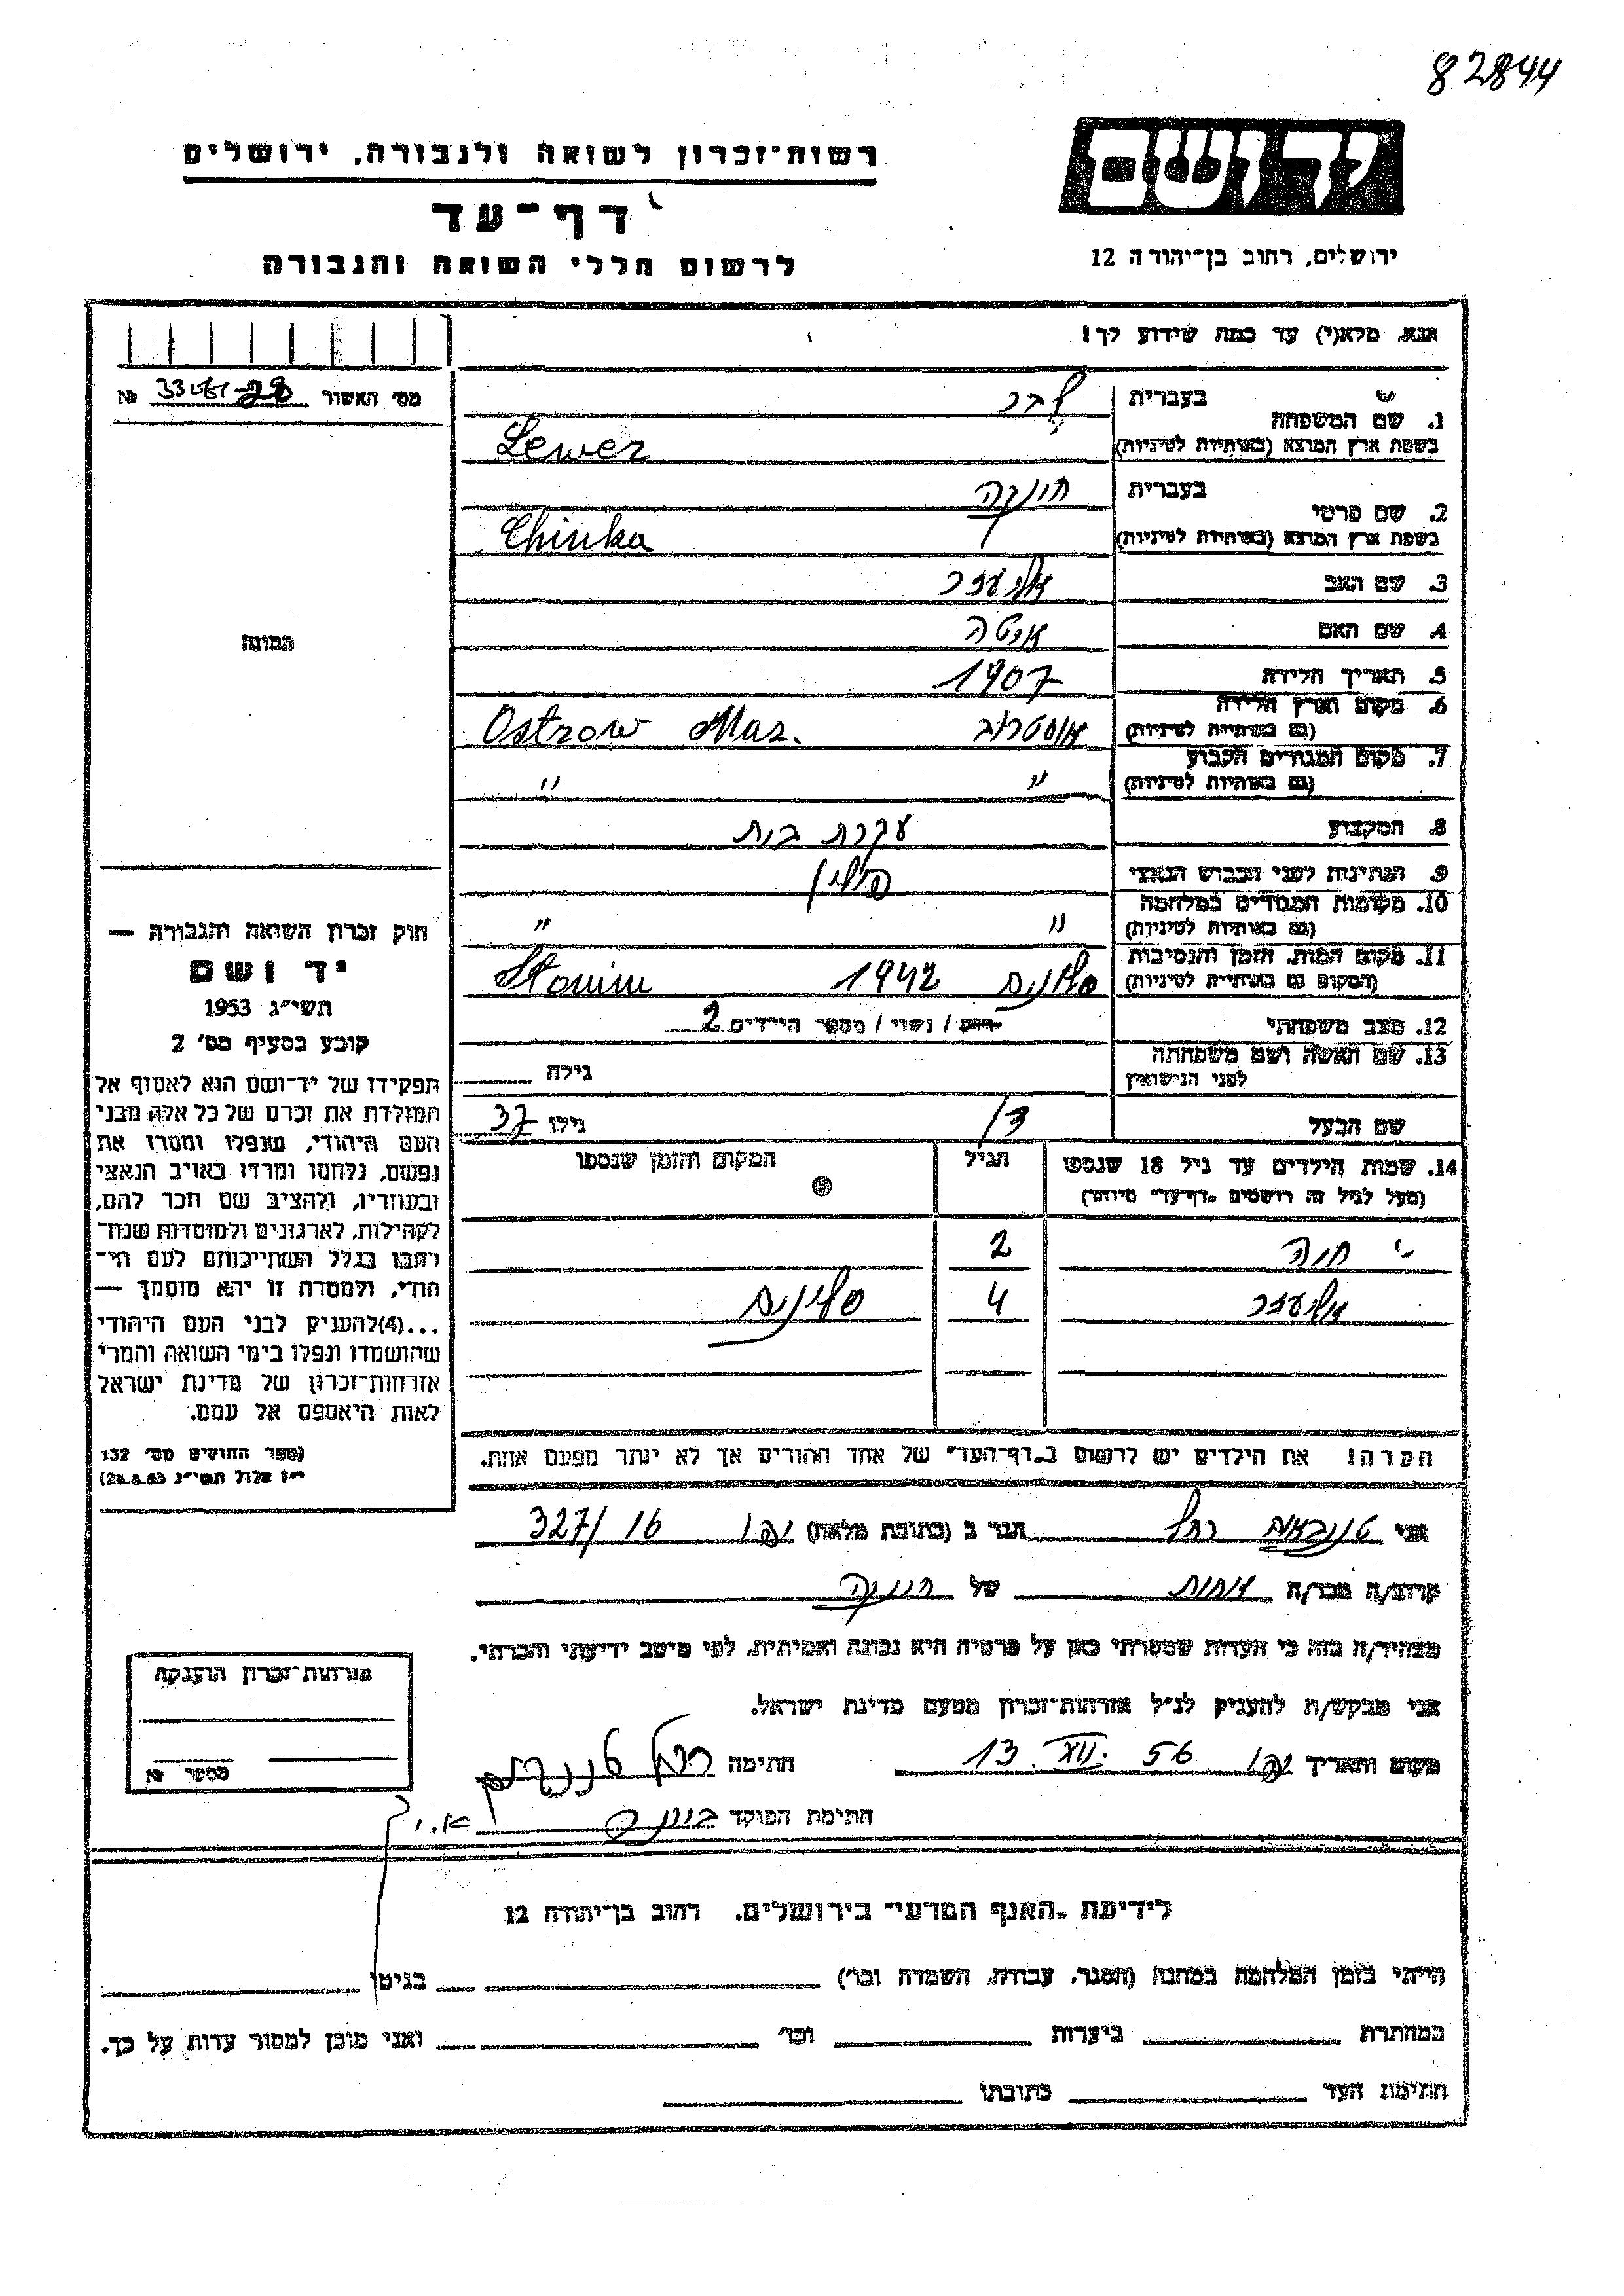 82844
יד ושם
ירושלים, רחוב בן־יהודה 12
רשות־זכרון לשואה ולגבורה, ירושלים
דף־עד
לרשום חללי השואה והגבורה
אנא, מלא(י) עד כמה שידוע לך!
מס׳ האשור № 28
1. שם המשפחה
בעברית לבר
בשפת ארץ המוצא (באותיות לטיניות) Lewer
2. שם פרטי
בעברית חינקה
בשפת ארץ המוצא (באותיות לטיניות) Chinka
3. שם האב אליעזר
4. שם האם איטה
5. תאריך הלידה 1907
6. מקום וארץ הלידה
(גם באותיות לטיניות) אוסטרוב Ostrow Maz.
7. מקום המגורים הקבוע
(גם באותיות לטיניות) " "
8. המקצוע עקרת בית
9. הנתינות לפני הכבוש הנאצי פולין
10. מקומות המגורים במלחמה
(גם באותיות לטיניות) " "
11. מקום המות, הזמן והנסיבות
(המקום גם באותיות לטיניות) סלונים 1942 Slonim
12. מצב משפחתי רווק / נשוי / מספר הילדים 2
13. שם האשה ושם משפחתה
לפני הנישואין גילה
שם הבעל גילו 37
14. שמות הילדים עד גיל 18 שנספו הגיל המקום והזמן שנספו
(מעל לגיל זה רושמים "דף־עד" מיוחד)
חיה 2
אליעזר 4 סלונים
הערה! את הילדים יש לרשום ב"דף־העד" של אחד ההורים אך לא יותר מפעם אחת.
התמונה
חוק זכרון השואה והגבורה —
יד ושם
תשי״ג 1953
קובע בסעיף מס׳ 2
תפקידו של יד־ושם הוא לאסוף אל
המולדת את זכרם של כל אלה מבני
העם היהודי, שנפלו ומסרו את
נפשם, נלחמו ומרדו באויב הנאצי
ובעוזריו, ולהציב שם וזכר להם,
לקהילות, לארגונים ולמוסדות שנח־
רבו בגלל השתייכותם לעם הי־
הודי, ולמטרה זו יהא מוסמך —
...(4)להעניק לבני העם היהודי
שהושמדו ונפלו בימי השואה והמרי
אזרחות־זכרון של מדינת ישראל
לאות היאספם אל עמם.
(ספר החוקים מס׳ 132
י״ז אלול תשי״ג 28.8.53)
אני טננבאום רחל הגר ב (כתובת מלאה) יפו 16 /327
קרוב/ה מכר/ה אחות של חינקה
מצהיר/ה בזה כי העדות שמסרתי כאן על פרטיה היא נכונה ואמיתית, לפי מיטב ידיעתי והכרתי.
אני מבקש/ת להעניק לנ״ל אזרחות־זכרון מטעם מדינת ישראל.
מקום ותאריך יפו 13. XII. 56 חתימה רחל טננבוים
חתימת הפוקד
אזרחות־זכרון הוענקה
מספר №
לידיעת "האגף המדעי" בירושלים. רחוב בן־יהודה 12
הייתי בזמן המלחמה במחנה (הסגר, עבודה, השמדה וכו׳) בגיטו
במחתרת ביערות וכו׳ ואני מוכן למסור עדות על כך.
חתימת העד כתובתו